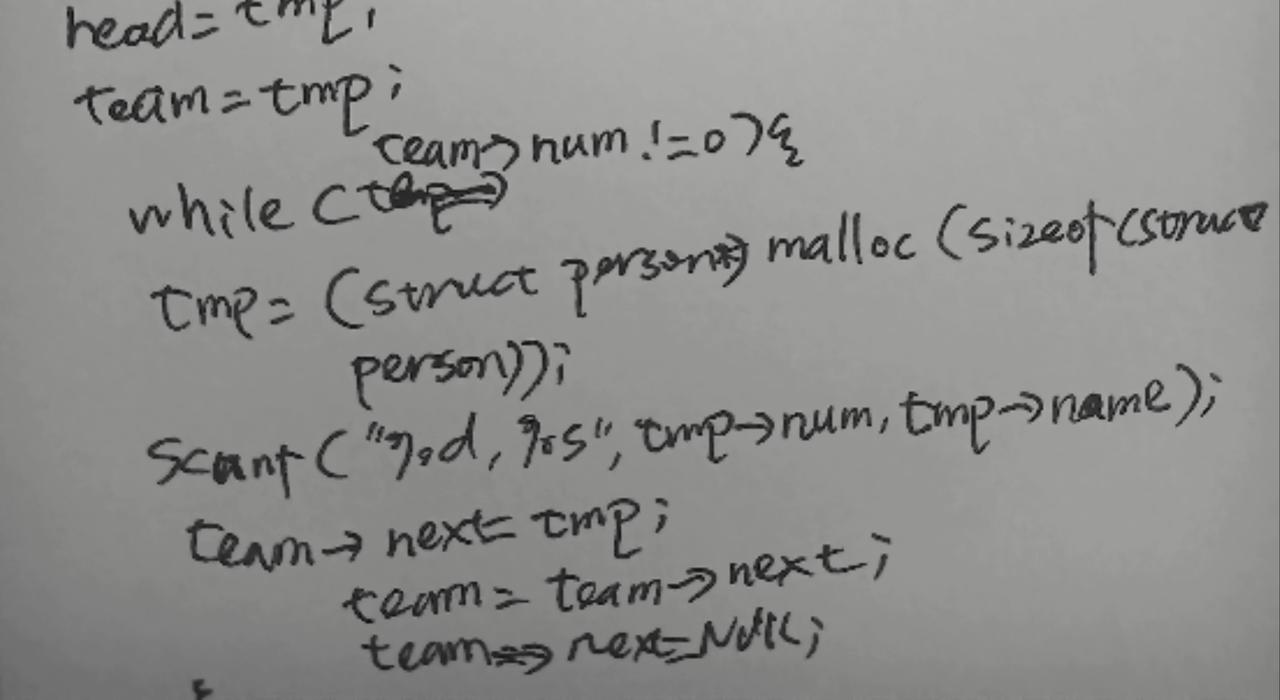 head= tmp;
team = tmp;
team->num != 0){
while (
tmp= (struct person*) malloc (sizeof (struct
person));
scanf ("%d, %s", tmp->num, tmp->name);
team-> next= tmp;
team = team->next;
team-> next=NULL;